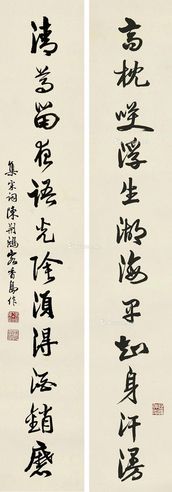 高枕咲浮生湖海早知身汗漫
清尊留夜語光陰須得酒銷磨
集宋詞陳荊鴻客香島作